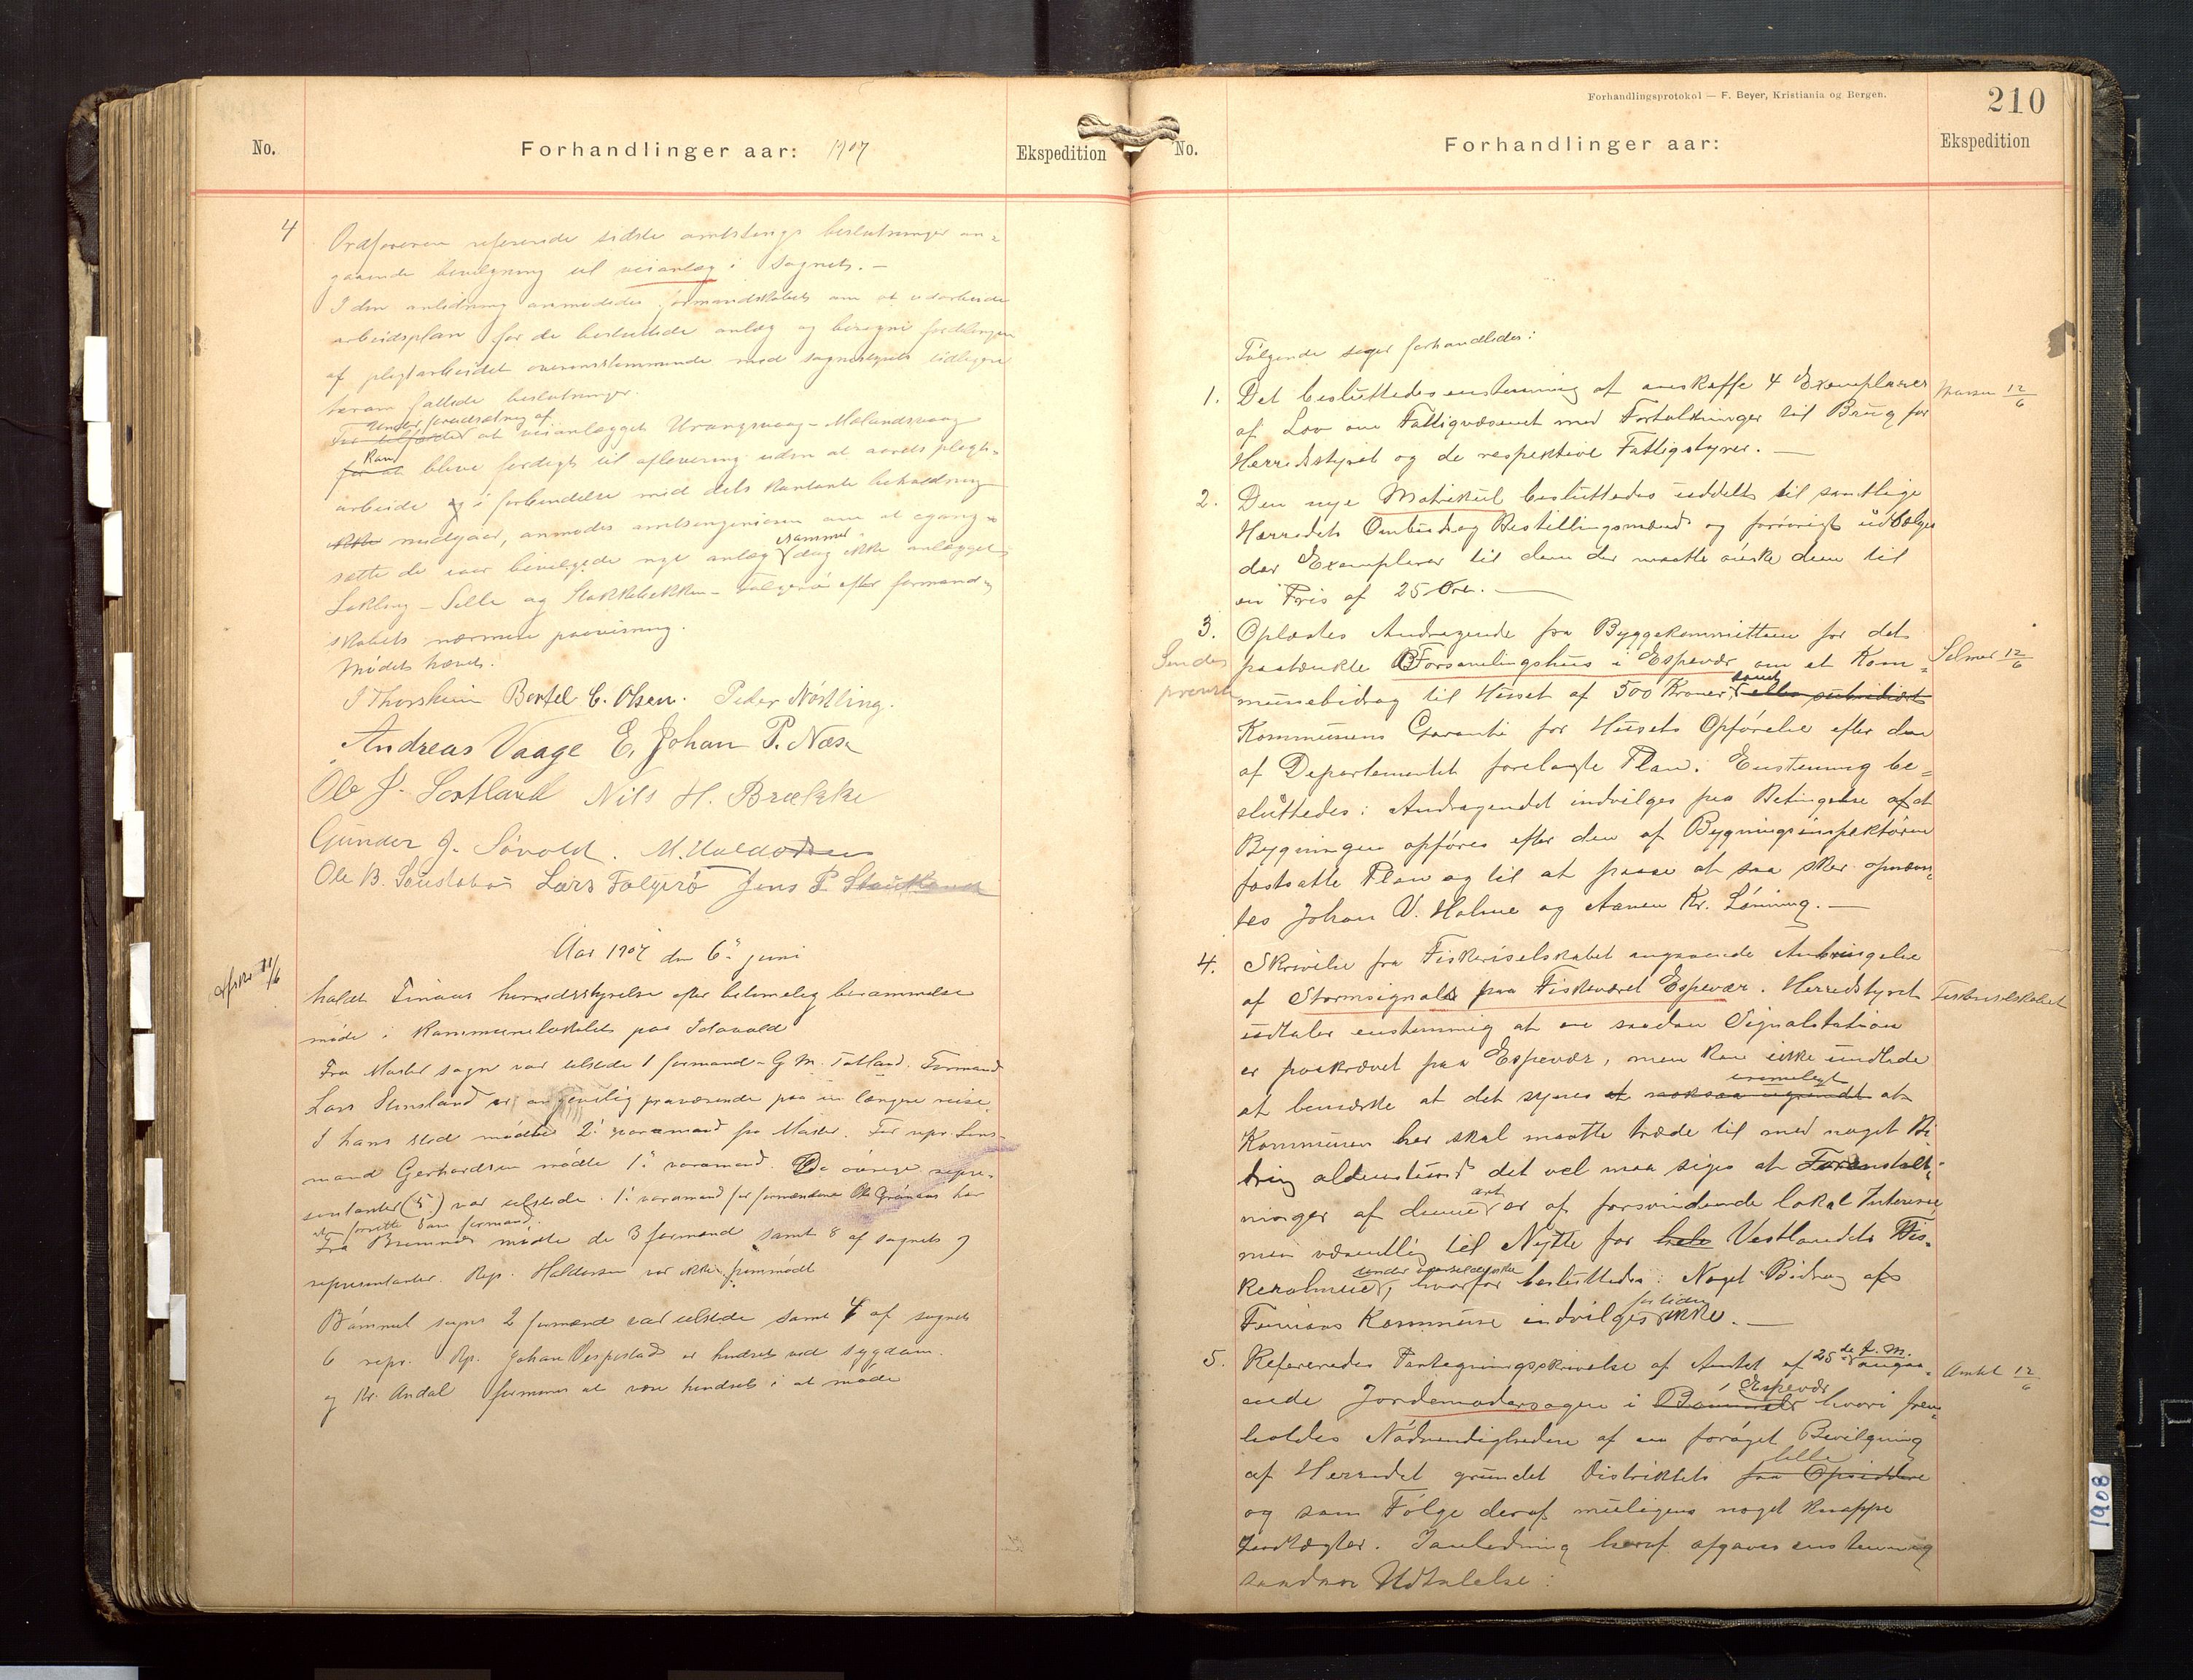 No.
Forhandlinger aar: 1907
Ekspedition
4
Ordføreren refererede sidste amtstings beslutninger an-
gaaende bevilgning til veianlæg i sognet. -
I den anledning anmodedes formandskabet om at udarbeide
arbeidsplan for de besluttede anlæg og beregne fordelingen
af pligtarbeidet overensstemmende med sognestyrets tidligere
herom fattede beslutninger.
Under forudsætning af
at veianlægget Urangsvaag - Mælandsvaag
kan
for at blive færdigt til aflevering uden at aarets pligt-
arbeide og i forbindelse med dets kontante beholdning
ikke medgaar, anmodes amtsingeniøren om at igang-
sætte de iaar bevilgede nye anlæg dog ikke anlægget
Løkling - Selle og Stokkebækken - Folgerø efter formand-
skabets nærmere paavisning.
Mødet hævet.
I Thorsheim Bertel C. Olsen. Peder Nøstling.
Andreas Vaage E. Johan P. Næss
Ole J. Sortland Nils H. Brække
Gunder J. Søvold. M. Haldorsen
Ole B. Lars Folgerø Jens P.
Aar 1907 den 6. juni
Afskr 11/6
holdt Finaas herredsstyrelse efter betimelig berammelse
møde i kommunelokalet paa Idavold
Fra Moster sogn var tilstede 1 formand - G M. Totland. Formand
Lars Stensland er paa en længere reise.
I hans sted mødte 2. varamand fra Moster. For repr. Lens-
mand Gerhardsen mødte 1. varamand. De øvrige repre-
sentanter (5) var tilstede. 1. varamand for formændene Ole Grønaas har
som formand.
Fra Bremnes mødte de 3 formænd samt 8 af sognets 9
representanter. Rep. Haldorsen var ikke fremmødt
Bømmel sogns 2 formænd var tilstede samt 4 af sognets
6 repr. Rp. Johan Vespestad er hindret ved sygdom.
og Kr. Andal formenes at være hindret i at møde
Forhandlingsprotokol — F. Beyer, Kristiania og Bergen.
210
No.
Forhandlinger aar:
Ekspedition
Følgende sager forhandledes:
1. Det besluttedes enstemmig at anskaffe 4 Exemplarer
12/6
af Lov om Fattigvæsenet med Fortolkninger til Brug for
Herredsstyret og de respektive Fattigstyrer. —
2. Den nye Matrikul besluttedes uddelt til samtlige
Herredets Ombuds og Bestillingsmænd og forøvrigt udsælges
der Exemplarer til dem der maatte ønske dem til
en Pris af 25 Øre. —
3. Oplæstes Andragende fra Byggekommitteen for det
Sendes
paatænkte Forsamlingshus i Espevær om et Kom-
Selmer 12/6
munebidrag til Huset af 500 Kroner samt eller subsidiært
Kommunens Garanti for Husets Opførelse efter den
af Departementet forelagte Plan. Enstemmig be-
sluttedes: Andragendet indvilges paa Betingelse af at
Bygningen opføres efter den af Bygningsinspektøren
fastsatte Plan og til at paase at saa sker opnævn-
tes Johan V. Holme og Aanen Kr. Lønning. —
4. Skrivelse fra Fiskeriselskabet angaaende Anbringelse
af Stormsignaler paa Fiskeværet Espevær. Herredstyret
Fiskeriselskabet
udtaler enstemmig at en saadan Signalstation
er paakrævet paa Espevær, men kan ikke undlade
urimeligt
at bemærke at det synes at
Kommunen her skal maatte træde til med noget Bi-
drag aldenstund det vel maa siges at Foranstalt-
art
ninger af denne er af forsvindende lokal Interesse
men væsentlig til Nytte for hele Vestlandets Fis-
keralmue, hvorfor besluttedes: Noget Bidrag af
for tiden
Finaas Kommune indvilges ikke. —
5. Refereredes Paategningsskrivelse af Amtet af 25de f. M. angaa-
Amtet 12/6
Espevær
ende Jordemodersagen i Bømmel hvori frem-
holdes Nødvendigheden af en forøget Bevilgning
lille
af Herredet grundet Distriktets faa Opsiddere
og som Følge deraf muligens noget knappe
Indtægter. I anledning heraf afgaves enstemmig
saadan Udtalelse:
1908